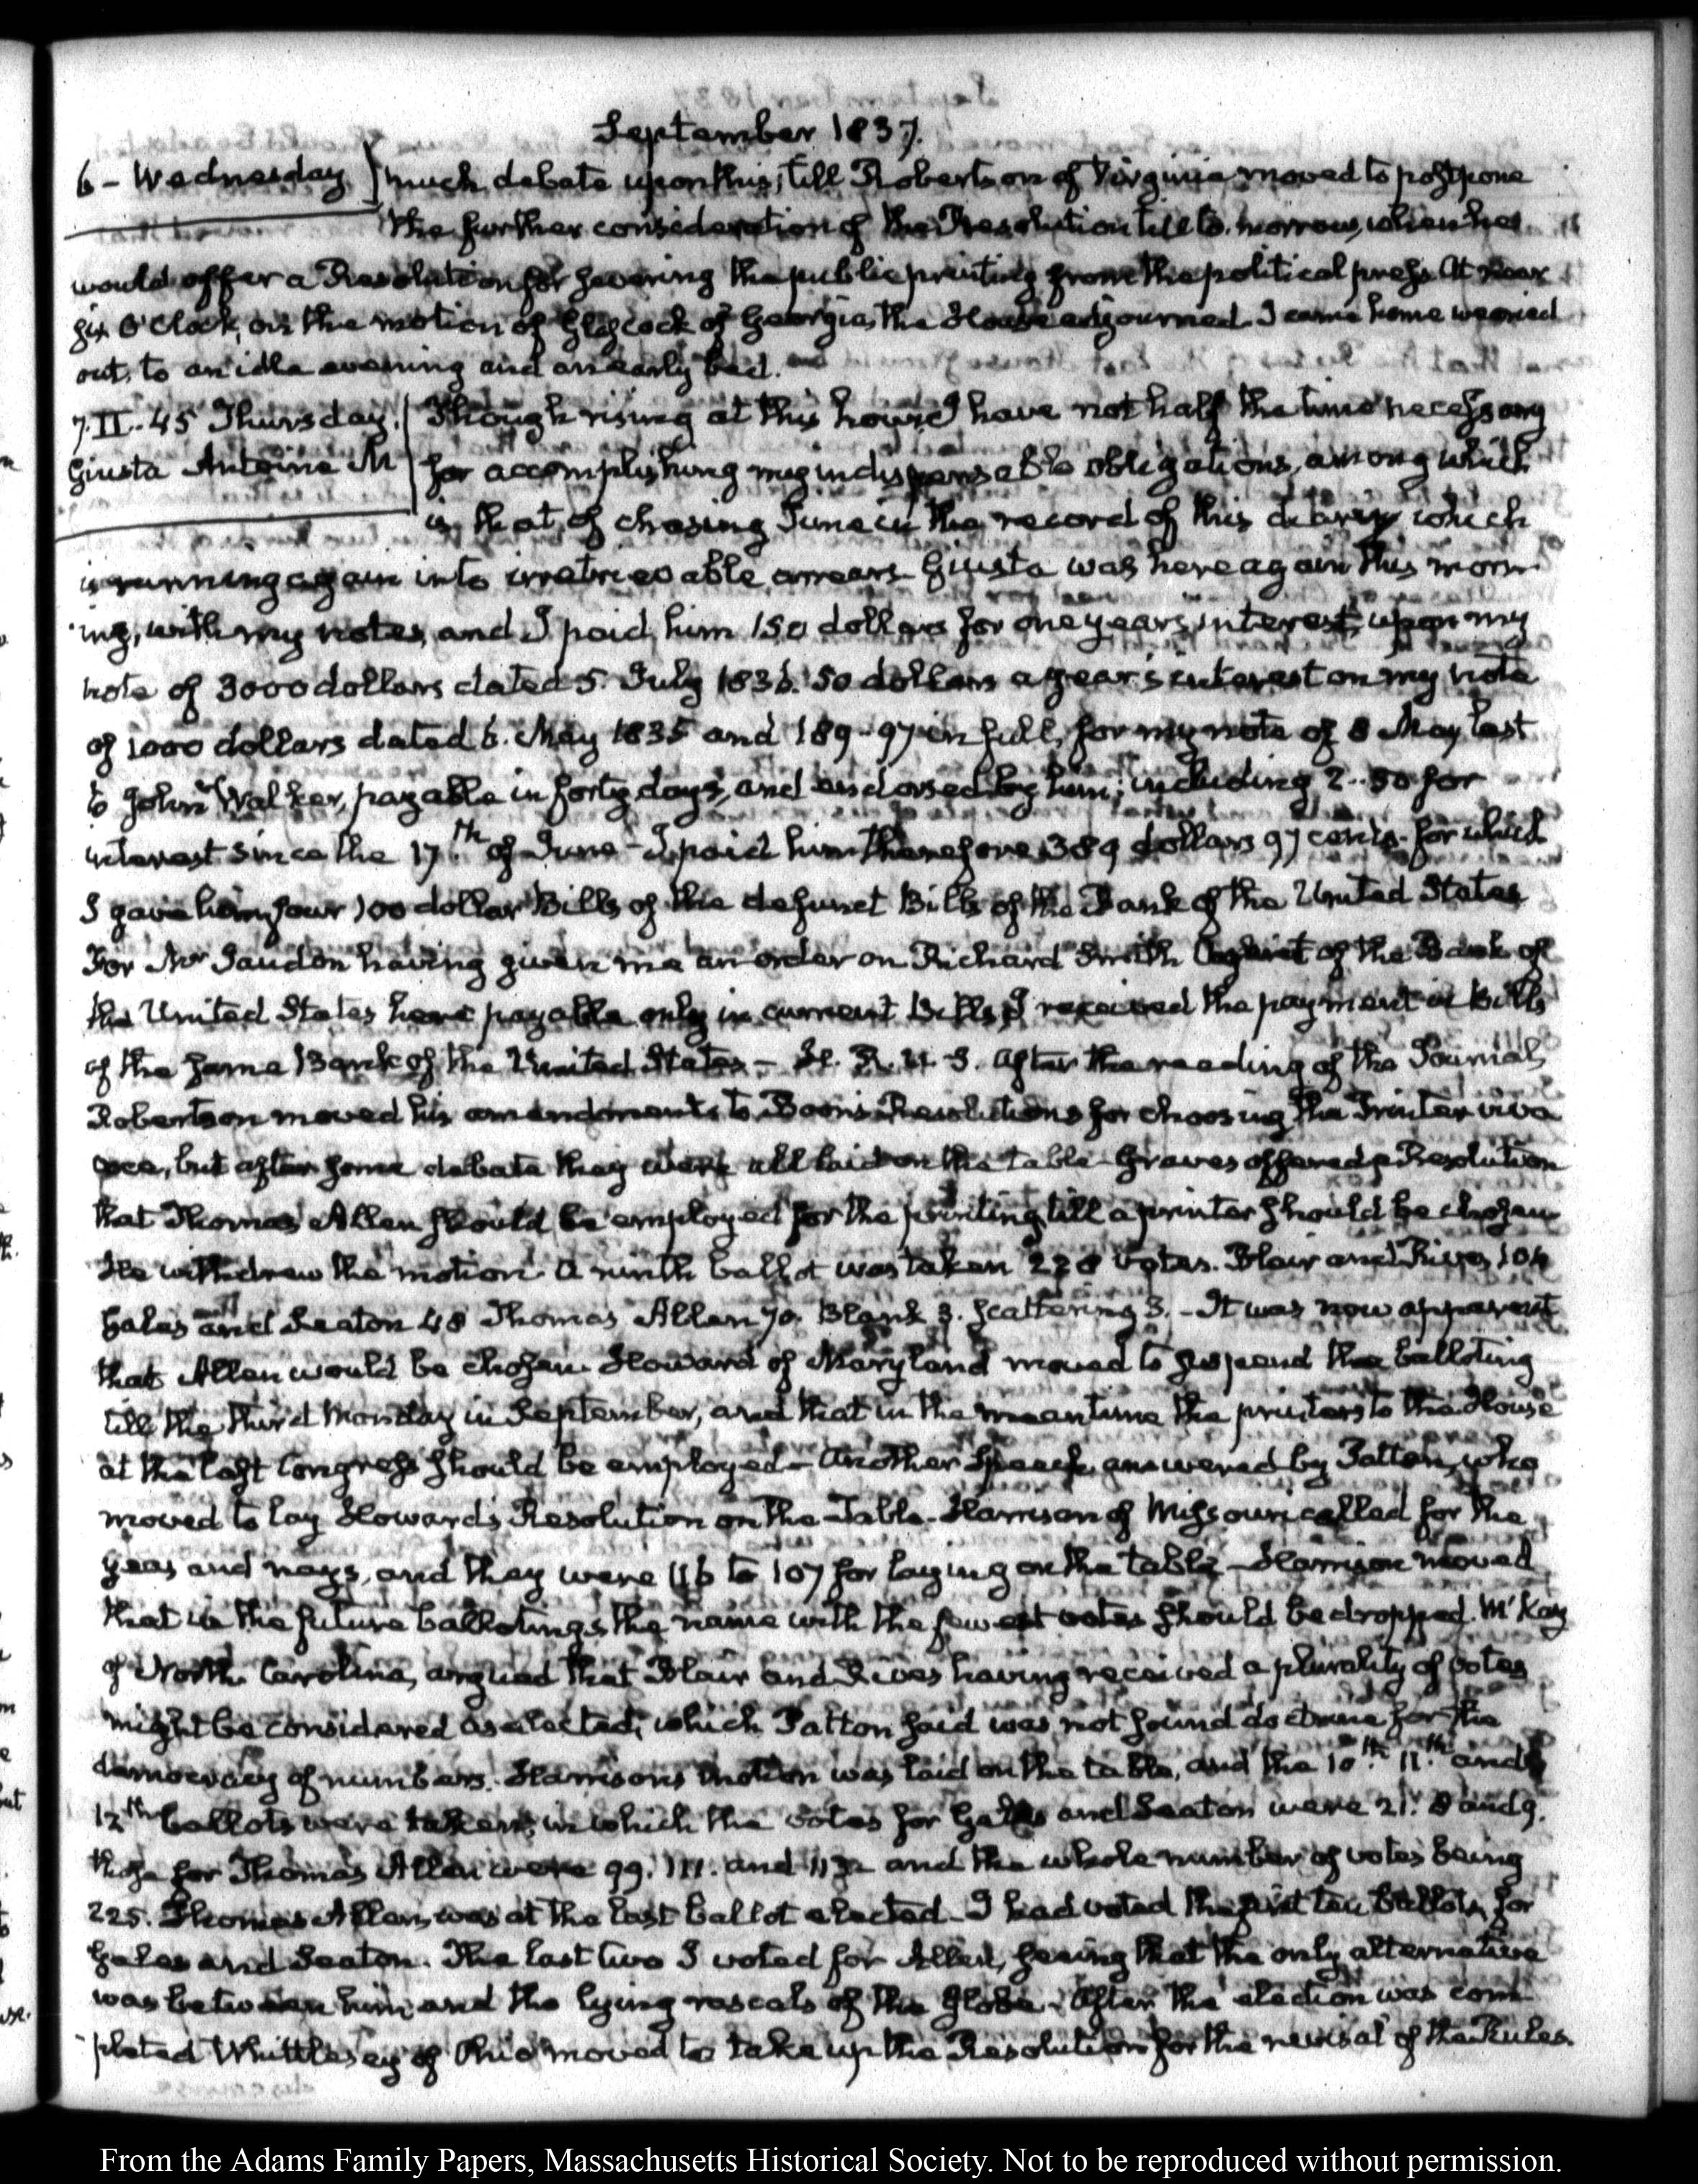 September 1837.
6 - Wednesday } much debate upon this, till Robertson of Virginia moved to postpone
the further consideration of the Resolution till to-morrow, when he
would offer a Resolution for severing the public printing from the political press. At near
six O'Clock, on the motion of Glascock of Georgia, the House adjourned. I came home wearied
out, to an idle evening and an early bed.
7. II. 45 Thursday. | Though rising at this hour I have not half the time necessary
Giusta Antoine M | for accomplishing my indispensable obligations, among which
is that of chasing Time in the record of this diary which
is running again into irretrievable arrears. Giusta was here again this morn-
ing, with my notes, and I paid him 150 dollars for one years interest upon my
note of 3000 dollars dated 5. July 1836. 50 dollars a year's interest on my note
of 1000 dollars dated 6. May 1835 and 189-97 in full, for my note of 8 May last
to John Walker, payable in forty days, and endorsed by him; including 2..50 for
interest since the 17th of June - I paid him therefore 389 dollars 97 cents. for which
I gave him four 100 dollar Bills of the defunct Bills of the Bank of the United States
For Mr Jaudon having given me an order on Richard Smith Agent of the Bank of
the United States here payable only in current Bills I received the payment in Bills
of the same Bank of the United States - H. R. U. S. After the reading of the Journal,
Robertson moved his amendments to Boon's Resolutions for choosing the Printer viva
voce, but after some debate they were all laid on the table - Graves offered a Resolution
that Thomas Allen should be employed for the printing till a printer should be chosen
He withdrew the motion. A ninth ballot was taken 228 votes. Blair and Rives 104
Gales and Seaton 48 Thomas Allen 70. Blank 3. Scattering 3. - It was now apparent
that Allen would be chosen. Howard of Maryland moved to suspend the balloting
till the third Monday in September, and that in the mean time the printers to the House
at the last Congress should be employed - Another Speech, answered by Patton, who
moved to lay Howard's Resolution on the Table - Harrison of Missouri called for the
yeas and nays, and they were 116 to 107 for laying on the table - Harrison moved
that in the future ballotings the name with the fewest votes should be dropped. M'Kay
of North Carolina, argued that Blair and Rives having received a plurality of votes
might be considered as elected; which Patton said was not sound doctrine for the
democracy of numbers. Harrison's motion was laid on the table, and the 10th 11th and
12th ballots were taken; in which the votes for Gales and Seaton were 21. 8 and 9.
those for Thomas Allen were 99. 111. and 113 and the whole number of votes being
225. Thomas Allen, was at the last ballot elected - I had voted the first ten ballots, for
Gales and Seaton. The last two I voted for Allen, seeing that the only alternative
was between him and the lying rascals of the Globe - After the election was com-
pleted Whittlesey of Ohio moved to take up the Resolution for the revisal of the Rules.
From the Adams Family Papers, Massachusetts Historical Society. Not to be reproduced without permission.